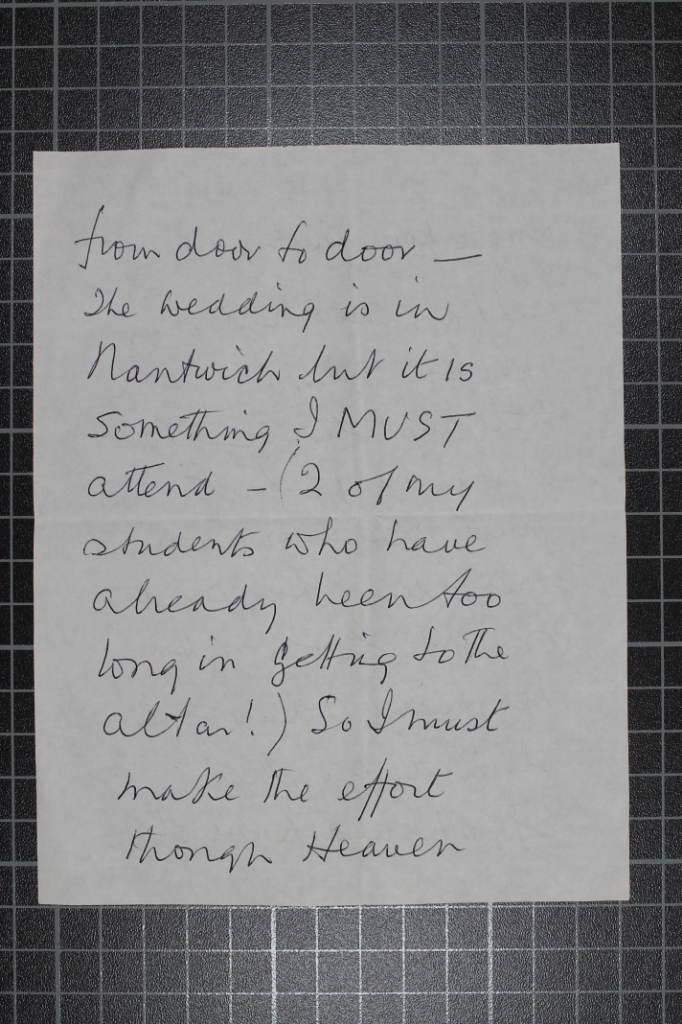 from door to door —
The wedding is in
Nantwich but it is
something I MUST
attend – (2 of my
students who have
already been too
long in getting to the
altar!) So I must
make the effort
though Heaven